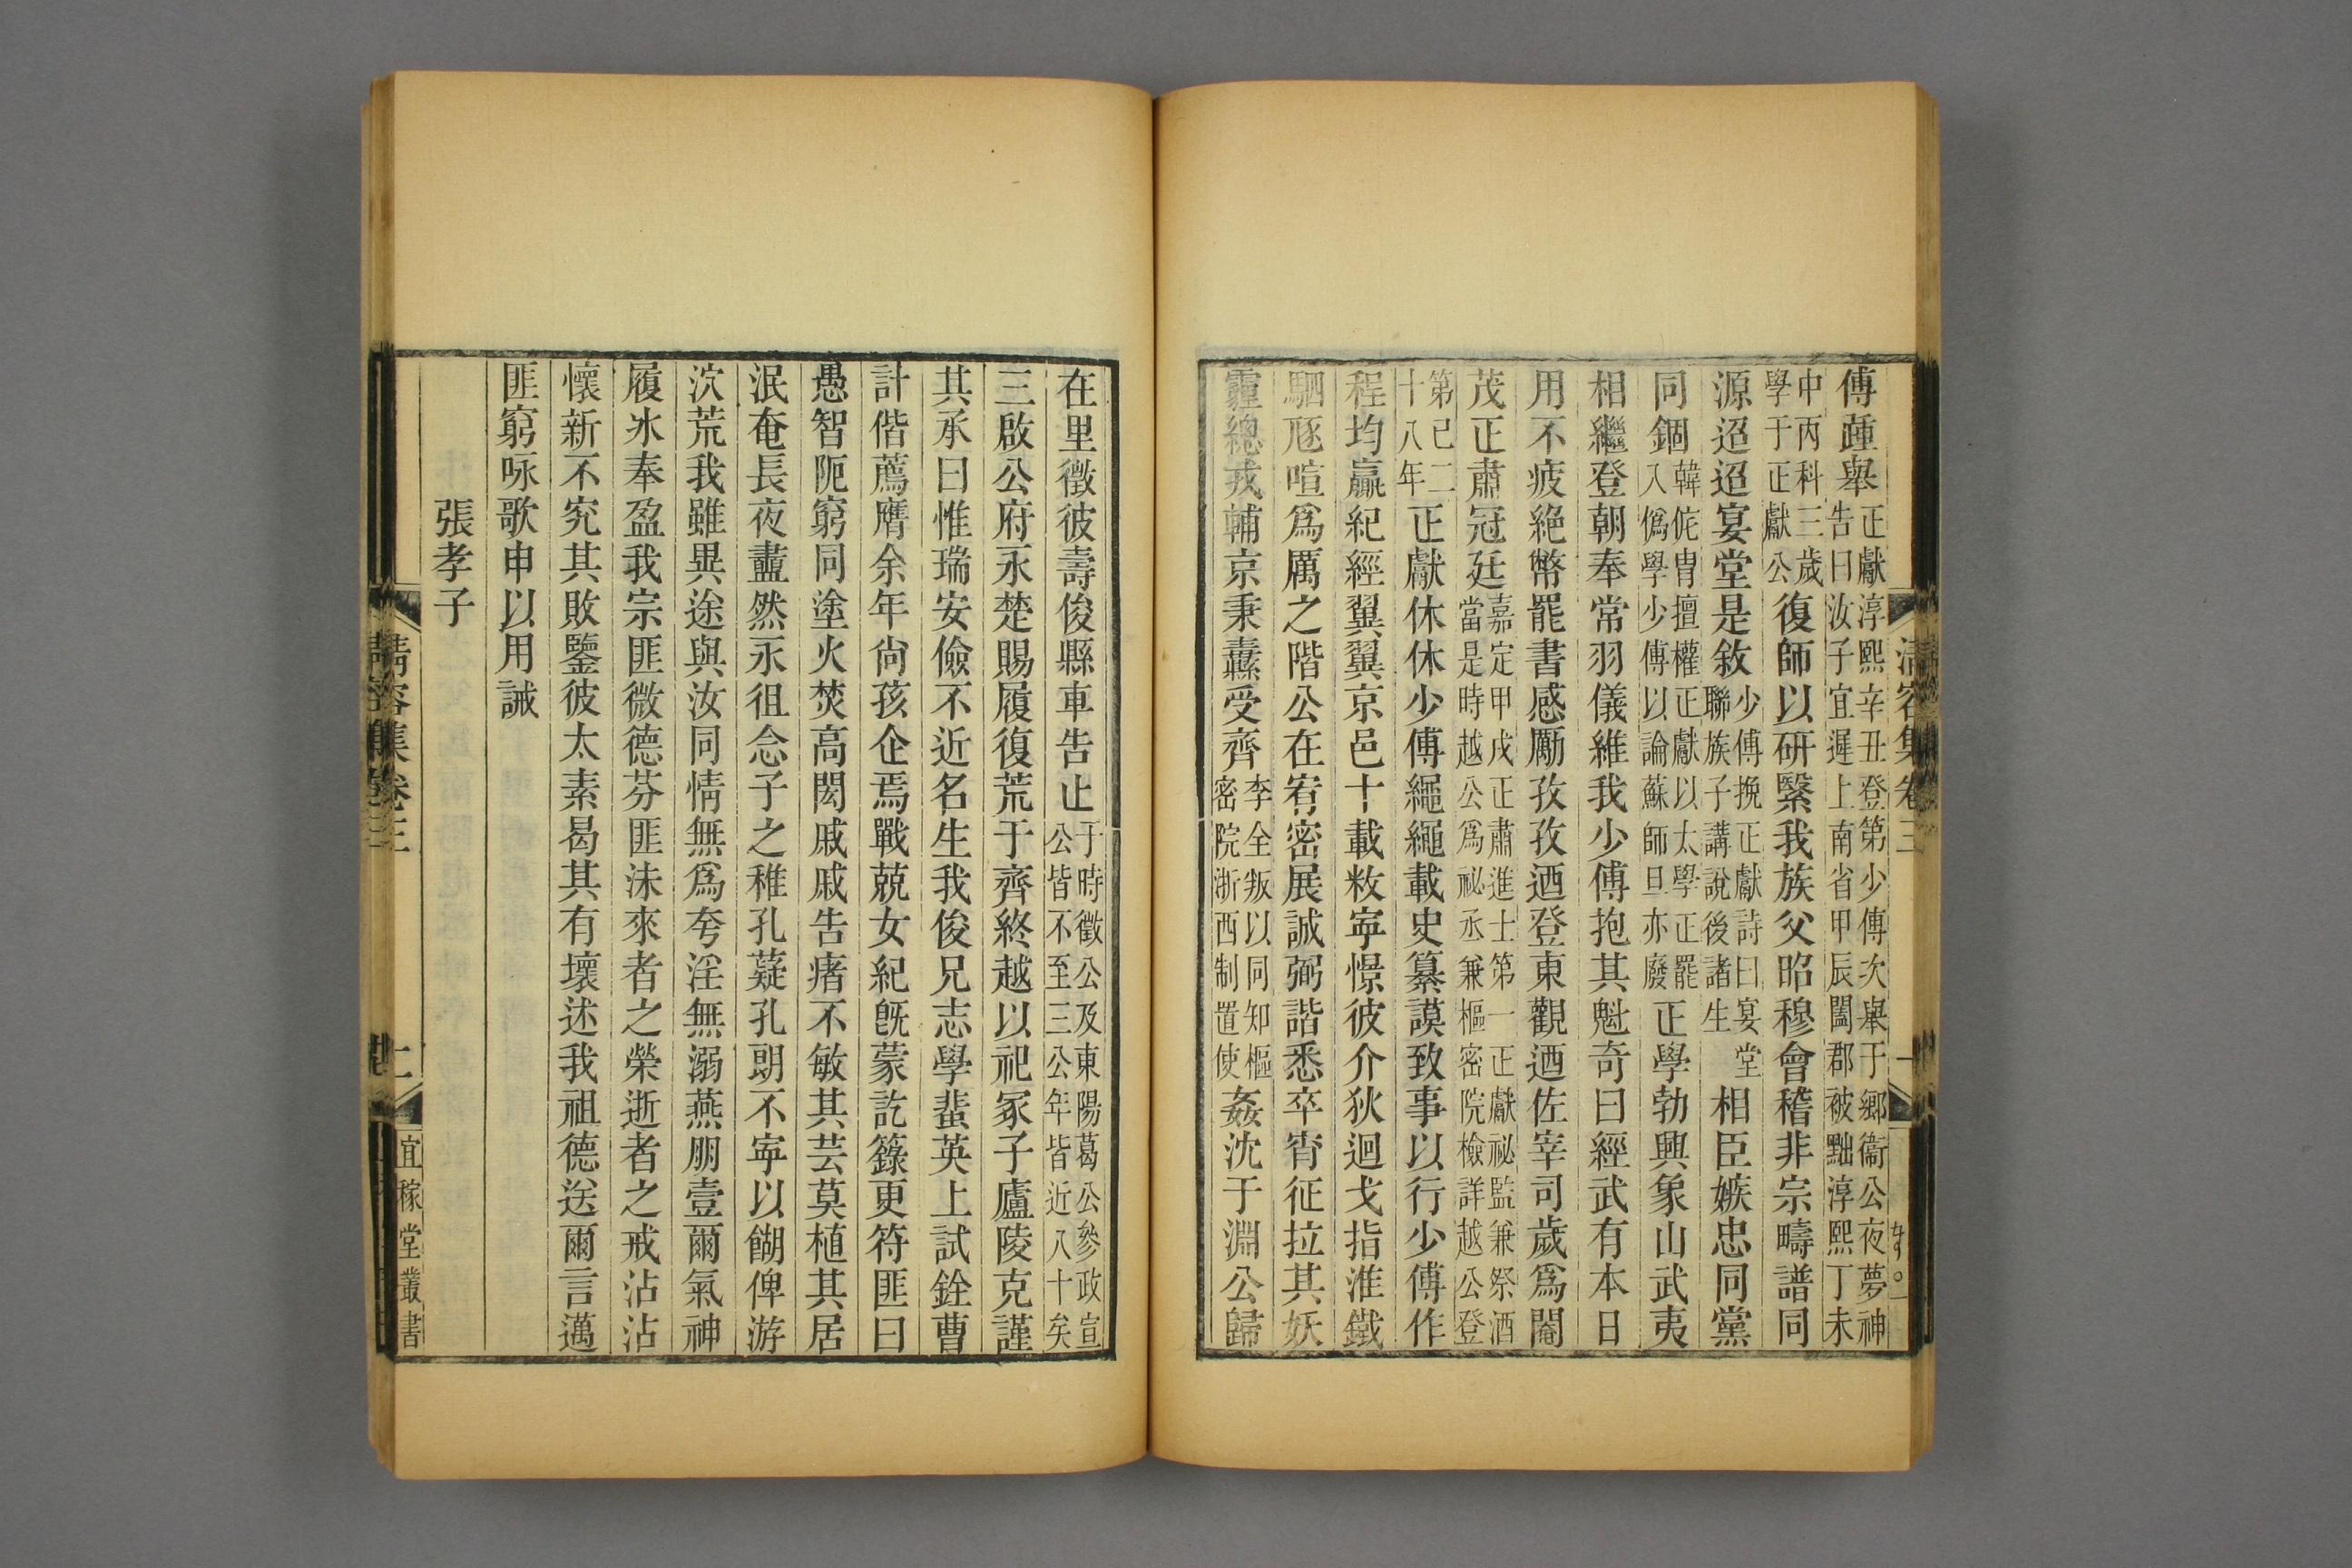 傅踵舉正獻淳熙辛丑登第少傅次舉于鄉衞公夜夢神告曰汝子宜遲上南省甲辰闔郡被黜淳熙丁未
中丙科三歲學于正獻公復師以研緊我族父昭穆會稽非宗疇譜同
源迢迢宴堂是敘少傅挽正獻詩曰宴堂聯族子講說後諸生相臣嫉忠同黨
同錮韓侂冑擅權正獻以太學正罷入僞學少傅以論蘇師旦亦廢正學勃興象山武夷
相繼登朝奉常羽儀維我少傅抱其魁奇曰經武有本日
用不疲絶幣罷書感勵孜孜迺登東觀迺佐宰司歲爲閹
茂正肅冠廷嘉定甲戌正肅進士第一正獻祕監兼祭酒當是時越公爲祕丞兼樞密院檢詳越公登
第己二十八年正獻休休少傅繩繩載史纂謨致事以行少傅作
程均贏紀經翼翼京邑十載敉寧憬彼介狄迴戈指淮鐵
駟豗喧爲厲之階公在宥密展誠弼諧悉卒宵征拉其妖
霾總戎輔京秉纛受齊李全叛以同知樞密院浙西制置使姦沈于淵公歸
在里徵彼壽俊縣車告止于時徵公及東陽葛公參政宣公皆不至三公年皆近八十矣
三啟公府永楚賜履復荒于齊終越以祀冢子廬陵克謹
其承曰惟瑞安儉不近名生我俊兄志學蜚英上試銓曹
計偕薦膺余年尙孩企焉戰兢女紀旣蒙訖籙更符匪曰
愚智阨窮同塗火焚高閎戚戚吿瘏不敏其芸莫植其居
泯奄長夜衋然永徂念子之稚孔薿孔朗不寧以餬俾游
泬荒我雖異途與汝同情無爲夸淫無溺燕朋壹爾氣神
履氷奉盈我宗匪微德芬匪沬來者之榮逝者之戒沾沾
懷新不究其敗鑒彼太素曷其有壞述我祖德送爾言邁
匪窮咏歌申以用誡
張孝子
淸容集卷三
宜稼堂叢書